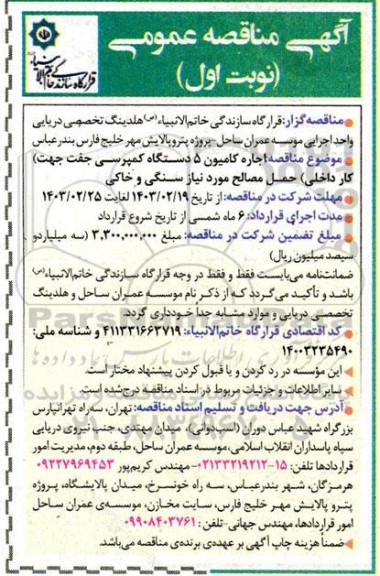 آگهی مناقصه عمومی
(نوبت اول)
قرارگاه سازندگی خاتم الانبیاء
مناقصه‌گزار: قرارگاه سازندگی خاتم‌الانبیاء(ص) هلدینگ تخصصی دریایی
واحد اجرایی موسسه عمران ساحل - پروژه پتروپالایش مهر خلیج فارس بندرعباس
موضوع مناقصه: اجاره کامیون ۵ دستگاه کمپرسی جفت جهت)
کار داخلی) حمل مصالح مورد نیاز سنگی و خاکی
مهلت شرکت در مناقصه: از تاریخ ۱۴۰۳/۰۲/۱۹ لغایت ۱۴۰۳/۰۲/۲۵
مدت اجرای قرارداد: ۶ ماه شمسی از تاریخ شروع قرارداد
مبلغ تضمین شرکت در مناقصه: مبلغ ۳,۳۰۰,۰۰۰,۰۰۰ (سه میلیاردو
سیصد میلیون ریال)
ضمانت‌نامه می‌بایست فقط و فقط در وجه قرارگاه سازندگی خاتم‌الانبیاء(ص)
باشد و تأکید می‌گردد که از ذکر نام موسسه عمران ساحل و هلدینگ
تخصصی دریایی و موارد مشابه جدا خودداری گردد.
کد اقتصادی قرارگاه خاتم‌الانبیاء: ۴۱۱۳۳۱۶۶۳۷۱۹ و شناسه ملی:
۱۴۰۰۳۲۳۵۴۹۰
این مؤسسه در رد کردن و یا قبول کردن پیشنهاد مختار است.
سایر اطلاعات و جزئیات مربوط در اسناد مناقصه درج شده است.
آدرس جهت دریافت و تسلیم اسناد مناقصه: تهران، سه‌راه تهرانپارس
بزرگراه شهید عباس دوران (اسب‌دوانی)، میدان مهتدی، جنب نیروی دریایی
سپاه پاسداران انقلاب اسلامی، موسسه عمران ساحل، طبقه دوم، مدیریت امور
قراردادها تلفن: ۱۵-۰۲۱۳۳۲۱۹۲۱۲-مهندس کریم‌پور ۰۹۲۲۷۹۶۹۴۵۳
هرمزگان، شهر بندرعباس، سه راه خونسرخ، میدان پالایشگاه، پروژه
پترو پالایش مهر خلیج فارس، سایت مخازن، موسسه‌ی عمران ساحل
امور قراردادها، مهندس جهانی-تلفن: ۰۹۹۰۸۴۰۳۷۶۱
ضمناً هزینه چاپ آگهی بر عهده‌ی برنده‌ی مناقصه می‌باشد.